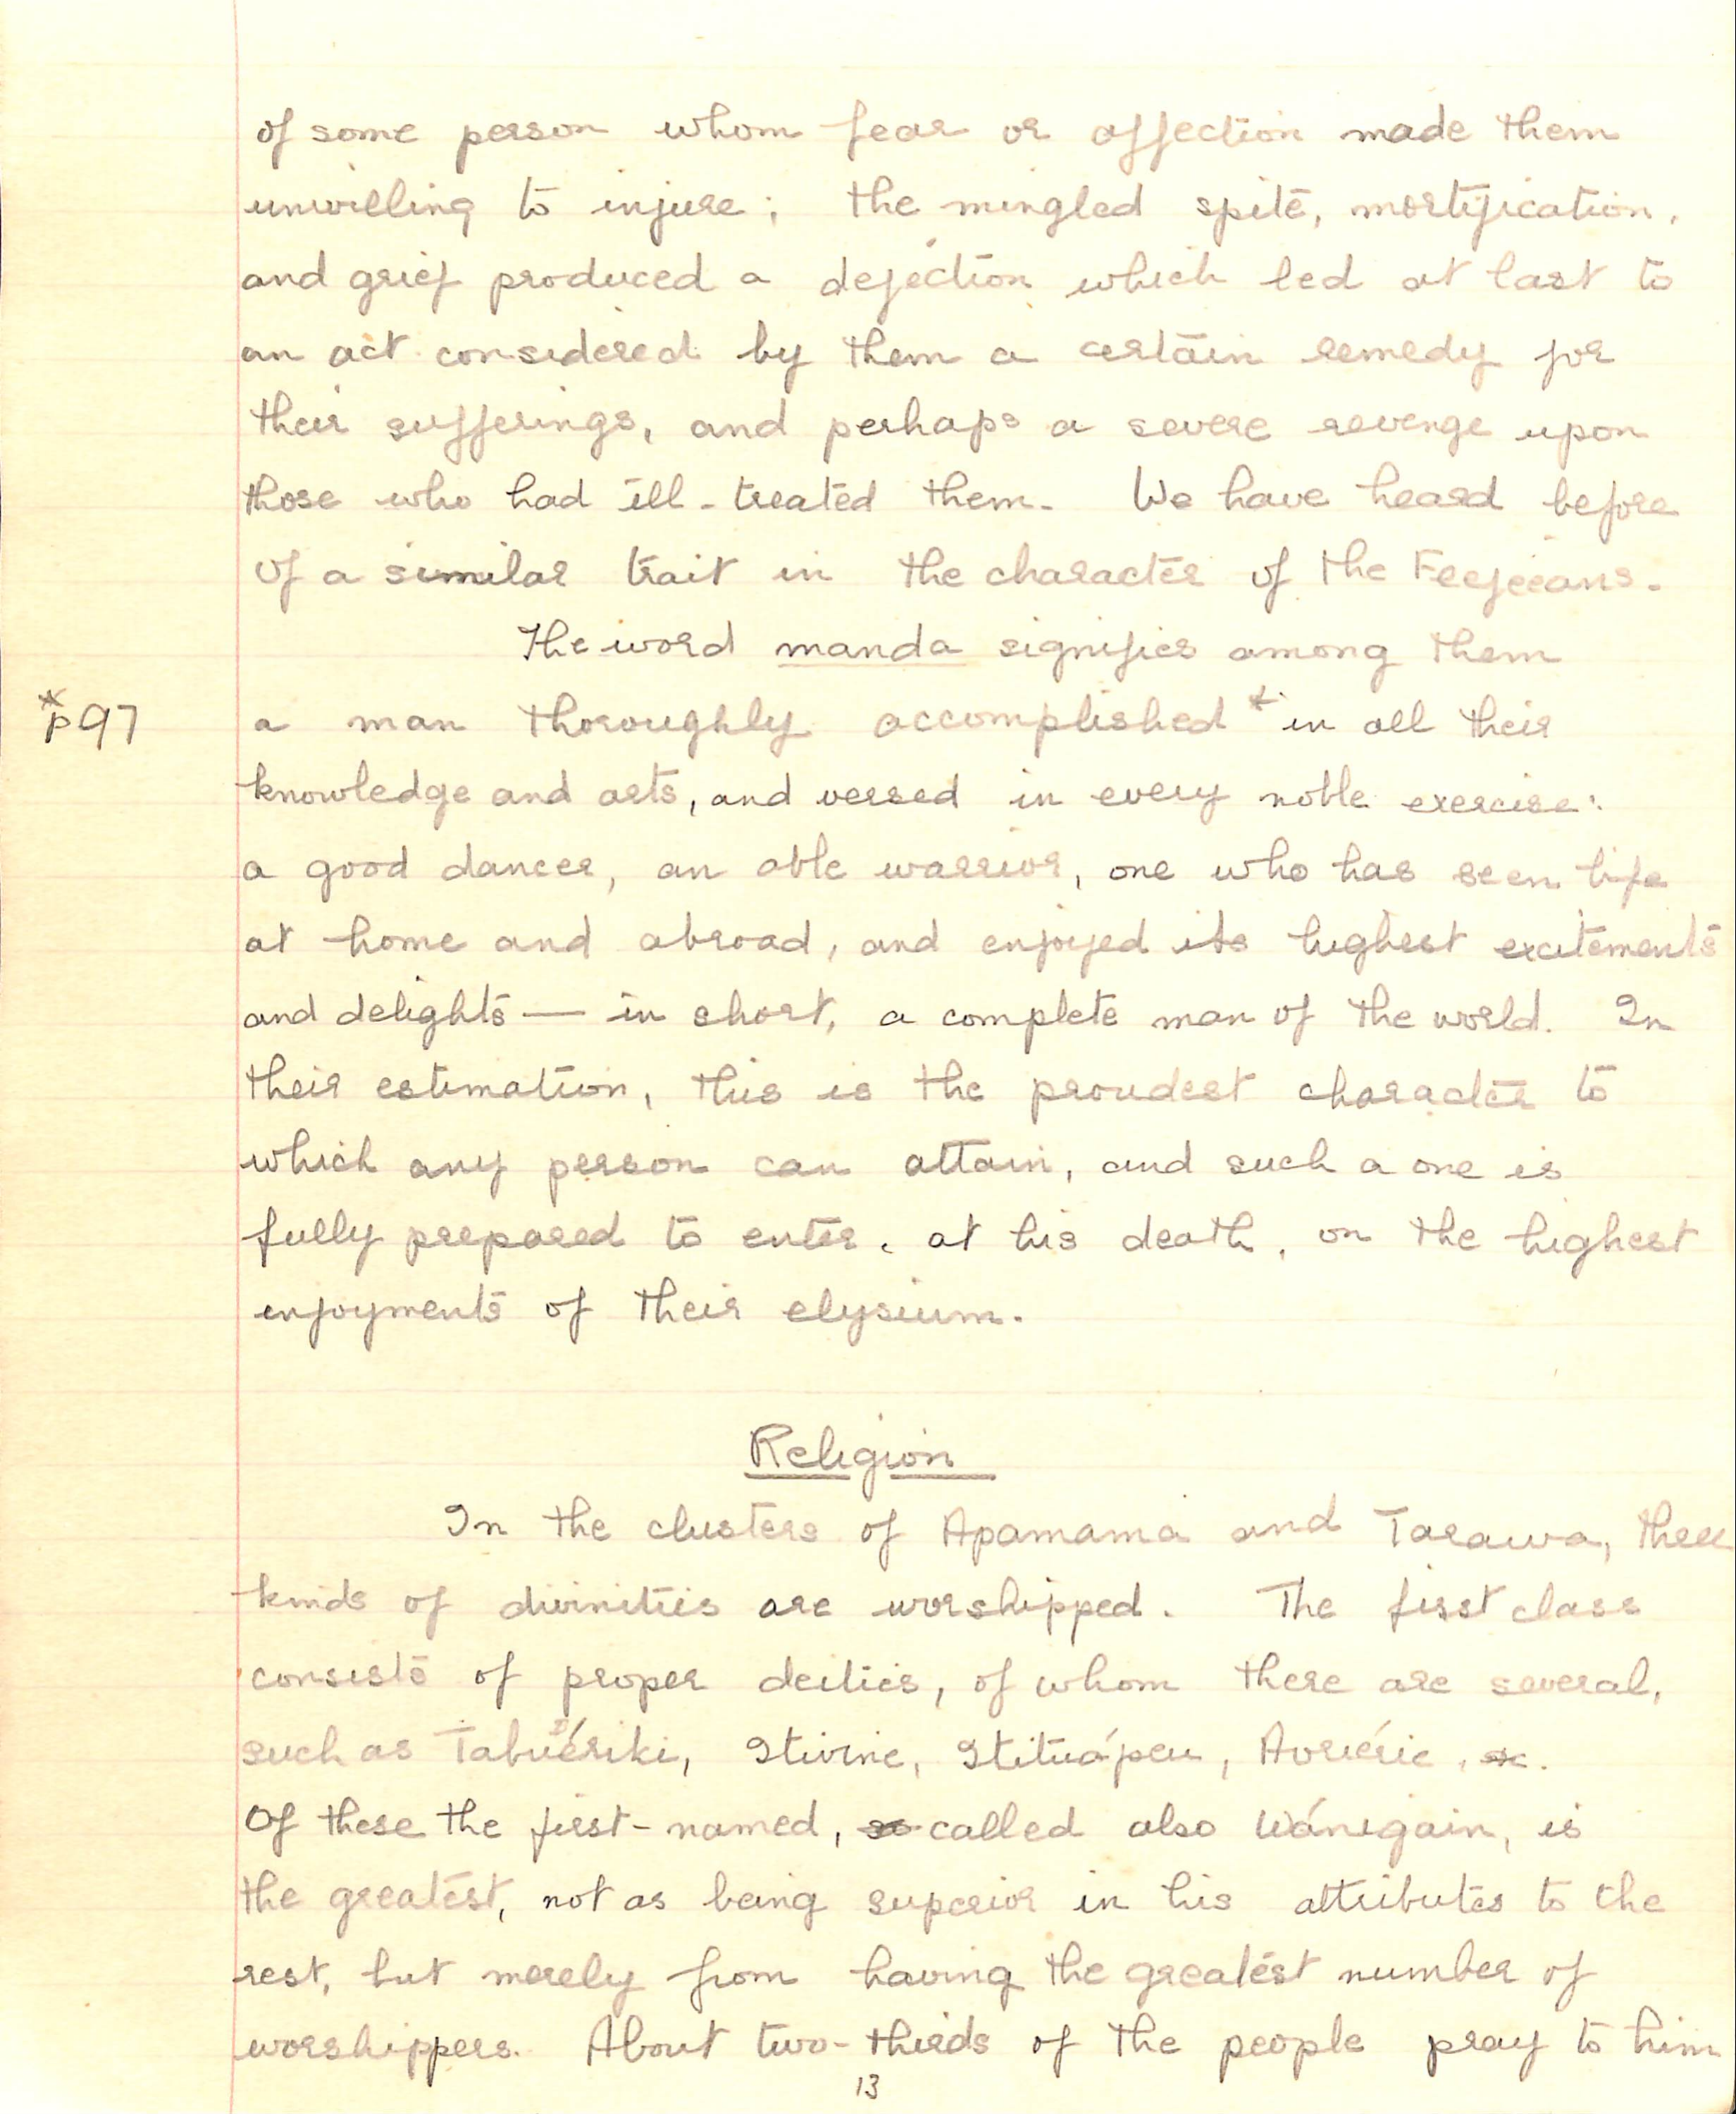 of some person whom fear or affection made them
unwilling to injure; the mingled spite, mortification,
and grief produced a dejection which led at last to
an act considered by them a certain remedy for
their sufferings, and perhaps a severe revenge upon
those who had ill-treated them. We have heard before
of a similar trait in the character of the Feejeeans.
The word manda signifies among them
*p97
a man thoroughly accomplished * in all their
knowledge and arts, and versed in every noble exercise:
a good dancer, an able warrior, one who has seen life
at home and abroad, and enjoyed its highest excitements
and delights — in short, a complete man of the world. In
their estimation, this is the proudest character to
which any person can attain, and such a one is
fully prepared to enter, at his death, on the highest
enjoyments of their elysium.
Religion
In the clusters of Apamama and Tarawa, three
kinds of divinities are worshipped. The first class
consists of proper deities, of whom there are several,
such as Tabuériki, Itivine, Itituápeu, Auriérie,
Of these the first-named, so called also Wánigain, is
the greatest, not as being superior in his attributes to the
rest, but merely from having the greatest number of
worshippers. About two-thirds of the people pray to him
13